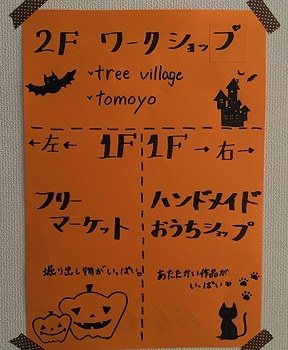 2F ワークショップ
✓tree village
✓tomoyo
←左← 1F
1F →右→
フリー
マーケット
掘り出し物がいっぱい。
ハンドメイド
おうちショップ
あたたかい作品が
いっぱい♥